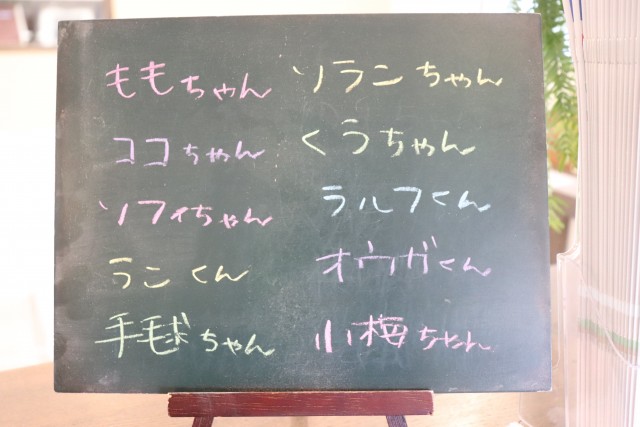 ももちゃん ソランちゃん
ココちゃん くうちゃん
ソフィちゃん ラルフくん
ランくん オウガくん
手毬ちゃん 小梅ちゃん